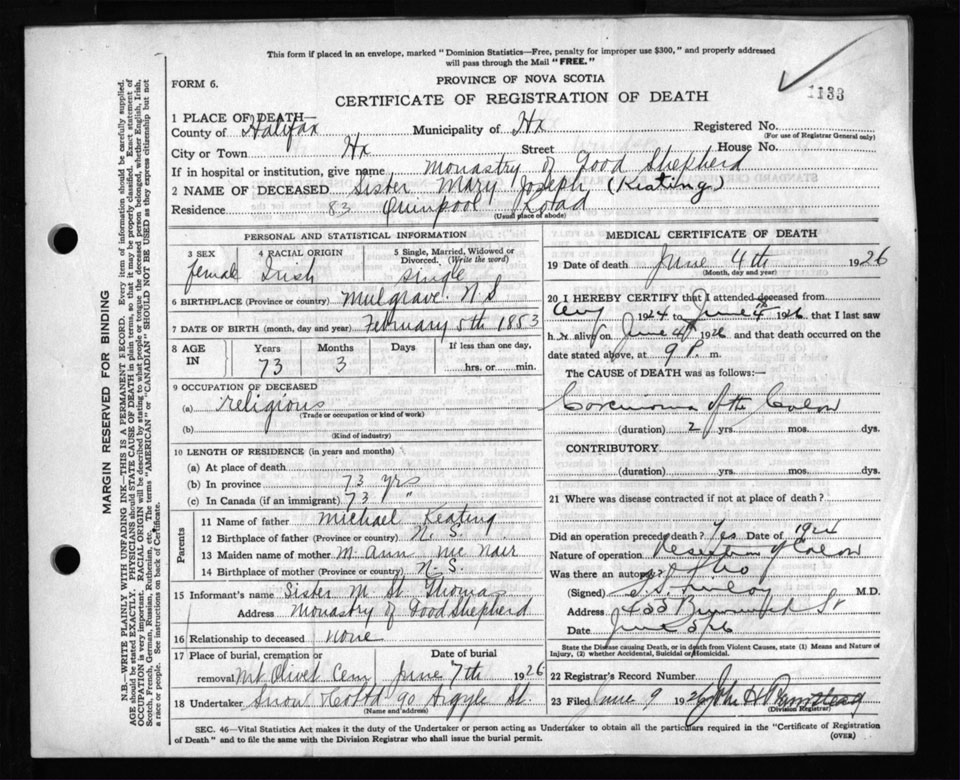 This form if placed in an envelope, marked "Dominion Statistics—Free, penalty for improper use $300," and properly addressed
will pass through the Mail "FREE."
FORM 6.
PROVINCE OF NOVA SCOTIA
1133
CERTIFICATE OF REGISTRATION OF DEATH
1 PLACE OF DEATH—
County of Halifax Municipality of Hx Registered No.
(For use of Registrar General only)
City or Town Hx Street House No.
If in hospital or institution, give name Monastry of Good Shepherd
2 NAME OF DECEASED Sister Mary Joseph (Kiating)
Residence 83 Quinpool Road
(Usual place of abode)
PERSONAL AND STATISTICAL INFORMATION
3 SEX 4 RACIAL ORIGIN 5 Single, Married, Widowed or
Divorced. (Write the word)
femal Irish single
6 BIRTHPLACE (Province or country) Mulgrave N.S
7 DATE OF BIRTH (month, day and year) February 5th 1853
8 AGE IN Years Months Days If less than one day,
73 3 hrs. or min.
9 OCCUPATION OF DECEASED
(a) religious
(Trade or occupation or kind of work)
(b)
(Kind of industry)
10 LENGTH OF RESIDENCE (in years and months)
(a) At place of death
(b) In province 73 yrs
(c) In Canada (if an immigrant) 73 "
Parents
11 Name of father Michael Keating
12 Birthplace of father (Province or country) N. S.
13 Maiden name of mother M. Ann Mc Nair
14 Birthplace of mother (Province or country) N. S.
15 Informant's name Sister M St. Thomas
Address Monastry of Good Shepherd
16 Relationship to deceased none
17 Place of burial, cremation or Date of burial
removal Mt Olivet Cem June 7th 1926
18 Undertaker Snow 90 Argyle St.
(Name and address)
MEDICAL CERTIFICATE OF DEATH
19 Date of death June 4th 1926
(Month, day and year)
20 I HEREBY CERTIFY that I attended deceased from
1924 to June 4th 1926 that I last saw
h er alive on June 4th 1926 and that death occurred on the
date stated above, at 9 P. m.
The CAUSE of DEATH was as follows:—
Carcinoma of the Colon
(duration) 2 yrs. mos. dys.
CONTRIBUTORY
(duration) yrs. mos. dys.
21 Where was disease contracted if not at place of death?
Did an operation precede death? Yes Date of 1924
Nature of operation Resection of Colon
Was there an autopsy? No
(Signed) M.D.
Address 455 Brunswick St
Date June 5/26
State the Disease causing Death, or in death from Violent Causes, state (1) Means and Nature of
Injury, (2) whether Accidental, Suicidal or Homicidal.
22 Registrar's Record Number
23 Filed June 9 1926 John H
(Division Registrar)
SEC. 46—Vital Statistics Act makes it the duty of the Undertaker or person acting as Undertaker to obtain all the particulars required in the "Certificate of Registration
of Death" and to file the same with the Division Registrar who shall issue the burial permit.
(OVER)
MARGIN RESERVED FOR BINDING
N.B.—WRITE PLAINLY WITH UNFADING INK—THIS IS A PERMANENT RECORD. Every item of information should be carefully supplied.
AGE should be stated EXACTLY. PHYSICIANS should STATE CAUSE OF DEATH in plain terms, so that it may be properly classified. Exact statement of
OCCUPATION is very important. RACIAL ORIGIN will be described by stating to what people or tongue the deceased person belonged, whether English, Irish,
Scotch, French, German, Russian, Ruthenian, etc. The terms "AMERICAN" or "CANADIAN" SHOULD NOT BE USED as they express citizenship but not
a race or people. See instructions on back of Certificate.